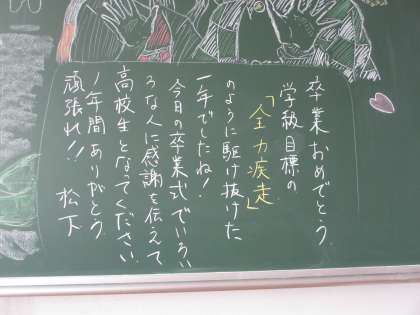 卒業おめでとう
学級目標の
「全力疾走」
のように駆け抜けた
一年でしたね!
今日の卒業式でいろい
ろな人に感謝を伝えて
高校生となってください
1年間ありがとう
頑張れ!! 松下